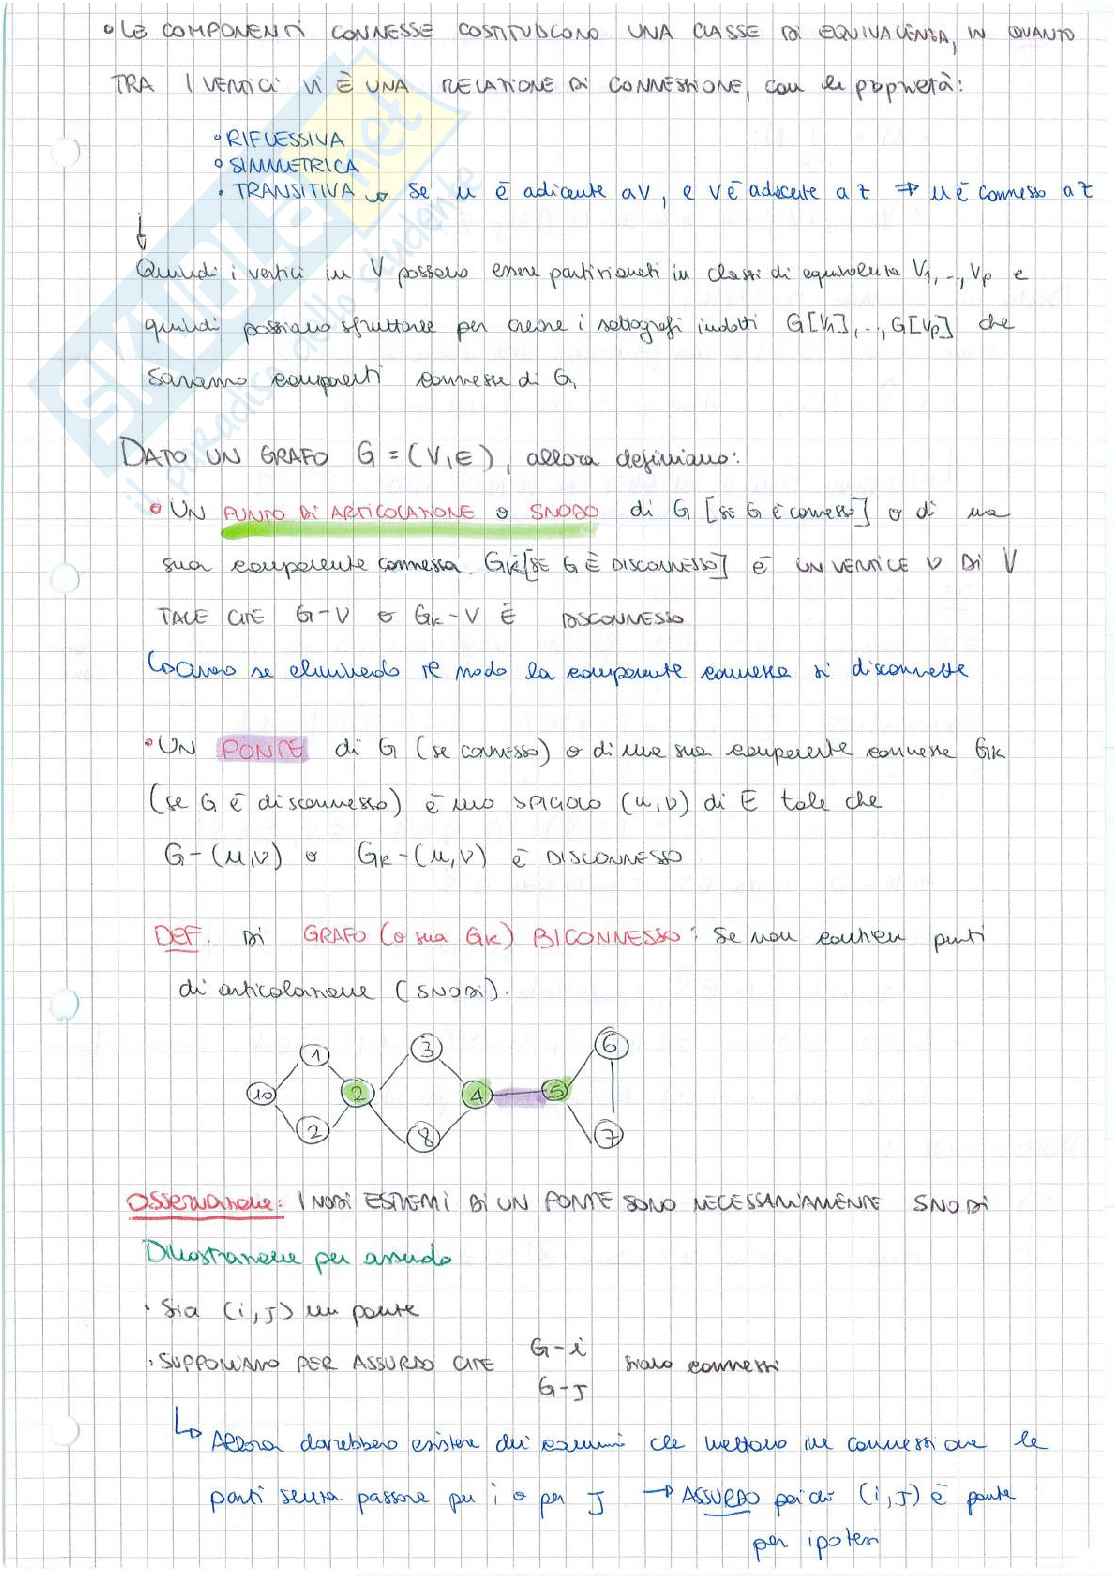 • LE COMPONENTI CONNESSE COSTITUISCONO UNA CLASSE DI EQUIVALENZA, IN QUANTO
TRA I VERTICI VI È UNA RELAZIONE DI CONNESSIONE, con le proprietà:
• RIFLESSIVA
• SIMMETRICA
• TRANSITIVA → Se u è adiacente a V, e V è adiacente a z ⇒ u è connesso a z
↓
Quindi i vertici in V possono essere partizionati in classi di equivalenza V1, .., Vp e
quindi possiamo sfruttare per creare i sottografi indotti G[V1], .., G[Vp] che
saranno componenti connesse di G.
DATO UN GRAFO G = (V, E), allora definiamo:
• UN PUNTO DI ARTICOLAZIONE o SNODO di G [se G è connesso] o di una
sua componente connessa GK [SE G È DISCONNESSO] è UN VERTICE V DI V
TALE CHE G-V o GK-V È DISCONNESSO
Cioè se elimino il nodo la componente connessa si disconnette
• UN PONTE di G (se connesso) o di una sua componente connessa GK
(se G è disconnesso) è uno SPIGOLO (u,v) di E tale che
G-(u,v) o GK-(u,v) è DISCONNESSO
DEF. DI GRAFO (o sua GK) BICONNESSO: Se non contien punti
di articolazione (SNODI).
1 3 6
10 2 4 5
2 8 7
Osservazione: I NODI ESTREMI DI UN PONTE SONO NECESSARIAMENTE SNODI
Dimostrazione per assurdo
• Sia (i, J) un ponte
• SUPPONIAMO PER ASSURDO CHE G-i
G-J siano connessi
↳ Allora dovrebbero esistere dei cammini che mettono in connessione le
parti senza passare per i o per J → ASSURDO poiché (i, J) è ponte
per ipotesi
SKUOLA.net
il paradiso dello studente